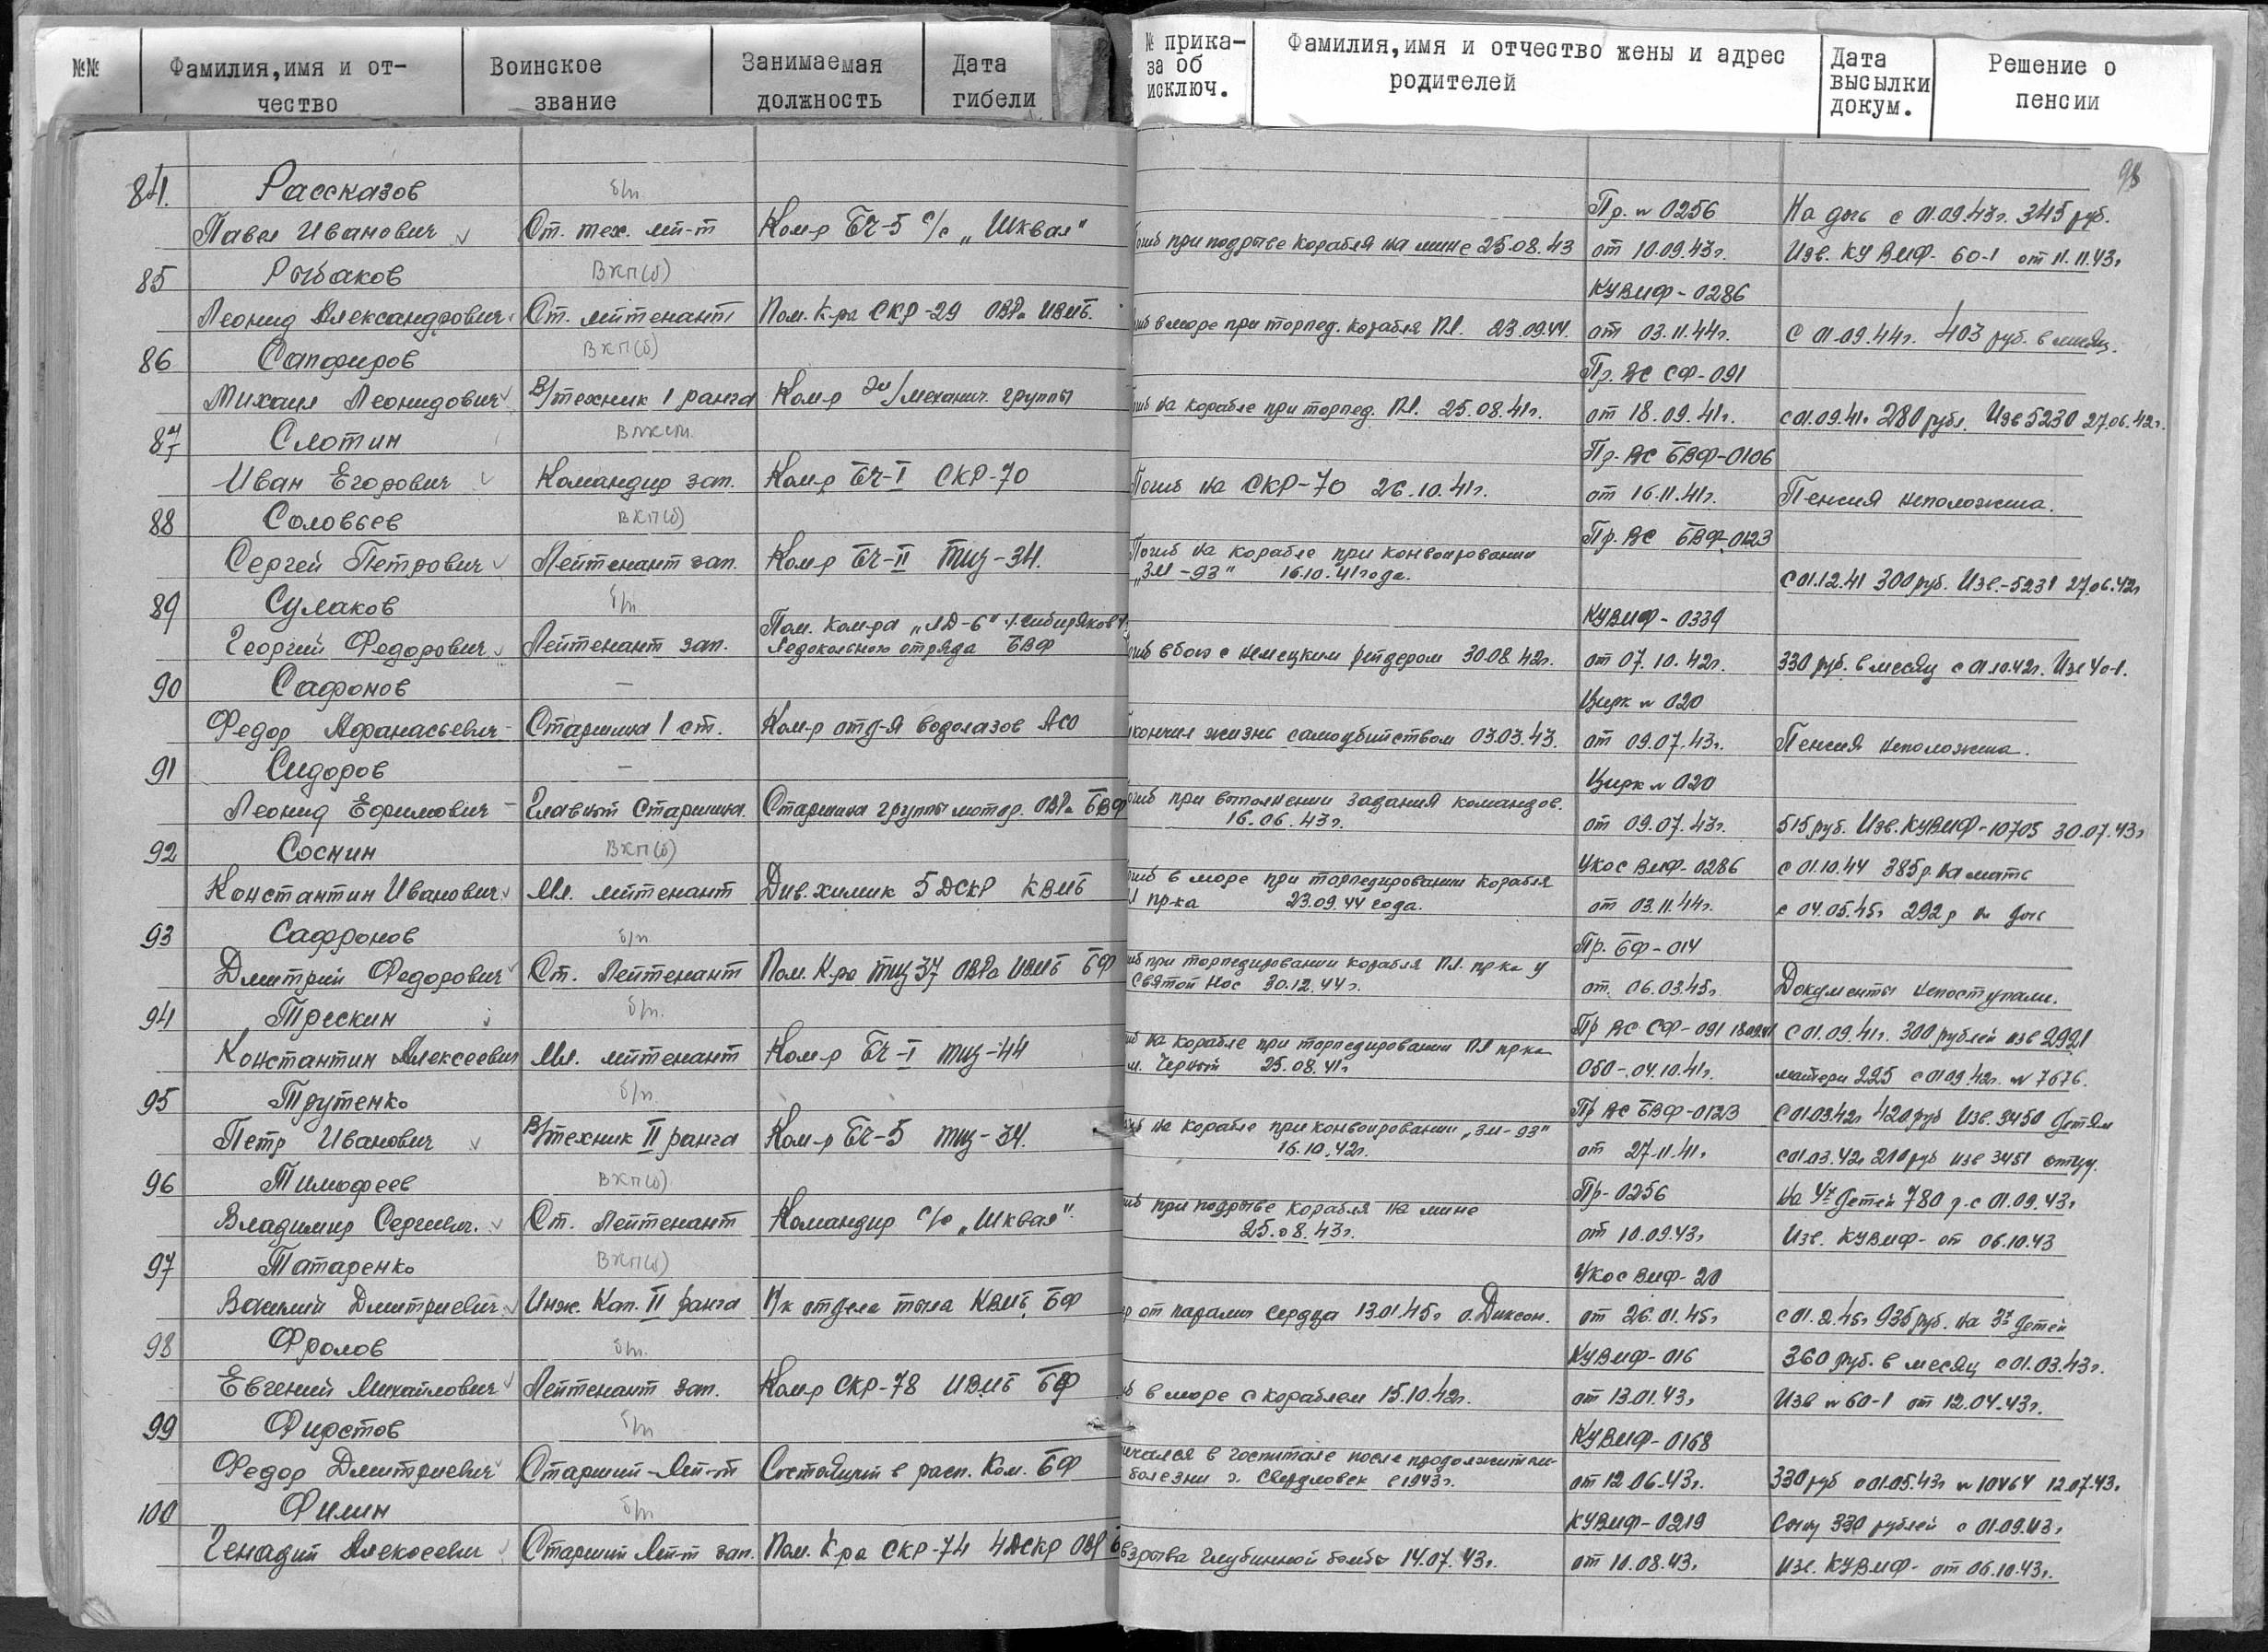 №№
Фамилия, имя и от-
чество
Воинское
звание
Занимаемая
должность
Дата
гибели
№ прика-
за об
исключ.
Фамилия, имя и отчество жены и адрес
родителей
Дата
высылки
докум.
Решение о
пенсии
98
84. Рассказов б/п
Павел Иванович Ст. тех. л-т Ком-р БЧ-5 с/с „Шквал"
погиб при подрыве корабля на мине 25.08.43
Пр. № 0256
от 10.09.43г.
На дочь с 01.09.43г. 345 руб.
Изв. КУ ВМФ- 60-1 от 11.11.43г
85 Рыбаков ВКП(б)
Леонид Александрович Ст. лейтенант Пом. К-ра СКР-29 ОВРа ИВМБ.
в море при торпед. корабля ПЛ. 23.09.44.
КУВМФ-0286
от 03.11.44г.
с 01.09.44г. 403 руб. в месяц.
86 Сапфиров ВКП(б)
Михаил Леонидович В/техник 1 ранга Ком-р эл/механич. группы
на корабле при торпед. ПЛ. 25.08.41г.
Пр. ВС СФ-091
от 18.09.41г.
с 01.09.41г 280 рубл. Изв 5230 27.06.42г.
87 Слотин ВЛКСМ.
Иван Егорович Командир зап. Ком-р БЧ-I СКР-70
Погиб на СКР-70 26.10.41г.
Пр. ВС БВФ-0106
от 16.11.41г.
Пенсия неположена.
88 Соловьев ВКП(б)
Сергей Петрович Лейтенант зап. Ком-р БЧ-II ТЩ-34.
Погиб на корабле при конвоировании
„ЗМ-93" 16.10.41 года.
Пр. ВС БВФ-0123
с 01.12.41 300 руб. Изв.-5231 27.06.42г
89 Сулаков б/п
Георгий Федорович Лейтенант зап. Пом. Ком-ра „ЛД-6" /.Сибиряков/
Ледокольного отряда БВФ
в бою с немецким рейдером 30.08.42г.
КУВМФ-0339
от 07.10.42г.
330 руб. в месяц с 01.10.42г. Изв 40-1.
90 Сафонов —
Федор Афанасьевич Старшина 1 ст. Ком-р отд-я водолазов АСО
кончил жизнь самоубийством 03.03.43.
Цирк № 020
от 09.07.43г.
Пенсия неположена.
91 Сидоров —
Леонид Ефимович Главный Старшина. Старшина группы мотор. ОВРа БВФ
при выполнении задания командов.
16.06.43г.
Цирк № 020
от 09.07.43г.
515 руб. Изв. КУВМФ-10705 30.07.43г
92 Соснин ВКП(б)
Константин Иванович Мл. лейтенант Див. химик 5 ДСКР КВМБ
в море при торпедировании корабля
пр-ка 23.09.44 года.
УКОС ВМФ-0286
от 03.11.44г.
с 01.10.44 385 р. на мать
с 04.05.45г 292 р на дочь
93 Сафронов б/п
Дмитрий Федорович Ст. Лейтенант Пом. К-ра ТЩ 37 ОВРа ИВМБ БФ
при торпедировании корабля ПЛ. пр-ка у
Святой Нос 30.12.44г.
Пр. БФ-014
от. 06.03.45г.
Документы непоступали.
94 Трескин б/п.
Константин Алексеевич Мл. лейтенант Ком-р БЧ-I ТЩ-44
на корабле при торпедировании ПЛ пр-ка
м. Черный 25.08.41г
Пр ВС СФ-091 18.09.41
050-.04.10.41г.
с 01.09.41г. 300 рублей изв 2921
матери 225 с 01.09.42г. № 7676.
95 Трутенко б/п.
Петр Иванович В/техник II ранга Ком-р БЧ-5 ТЩ-34.
на корабле при конвоировании „ЗМ-93"
16.10.42г.
Пр ВС БВФ-0123
от 27.11.41г
с 01.03.42г 420 руб Изв. 3450 детям
с 01.03.42г 210 руб изв 3451 отцу.
96 Тимофеев ВКП(б)
Владимир Сергеевич. Ст. Лейтенант Командир с/с „Шквал".
при подрыве корабля на мине
25.08.43г.
Пр-0256
от 10.09.43г
на 4х детей 780 р. с 01.09.43г
Изв. КУВМФ- от 06.10.43
97 Татаренко ВКП(б)
Василий Дмитриевич Инж. Кап. II ранга Н/к отдела тыла КВМБ БФ
от паралич сердца 13.01.45г о. Диксон.
УКОС ВМФ-20
от 26.01.45г
с 01.2.45г 935 руб. на 3х детей
98 Фролов б/п.
Евгений Михайлович Лейтенант зап. Ком-р СКР-78 ИВМБ БФ
в море с кораблем 15.10.42г.
КУВМФ-016
от 13.01.43г
360 руб. в месяц с 01.03.43г.
Изв № 60-1 от 12.04.43г.
99 Фирстов б/п
Федор Дмитриевич Старший-Лей-т Состоящий в расп. Ком. БФ
скончался в госпитале после продолжитель-
болезни г. Свердловск с 1943г.
КУВМФ-0168
от 12.06.43г.
330 руб с 01.05.43г № 10464 12.07.43г
100 Филин б/п
Генадий Алексеевич Старший Лей-т зап. Пом. К-ра СКР-74 4ДСКР ОВР
взрыва глубинной бомбы 14.07.43г.
КУВМФ-0219
от 10.08.43г
Сыну 330 рублей с 01.09.43г
Изв. КУВМФ- от 06.10.43г.